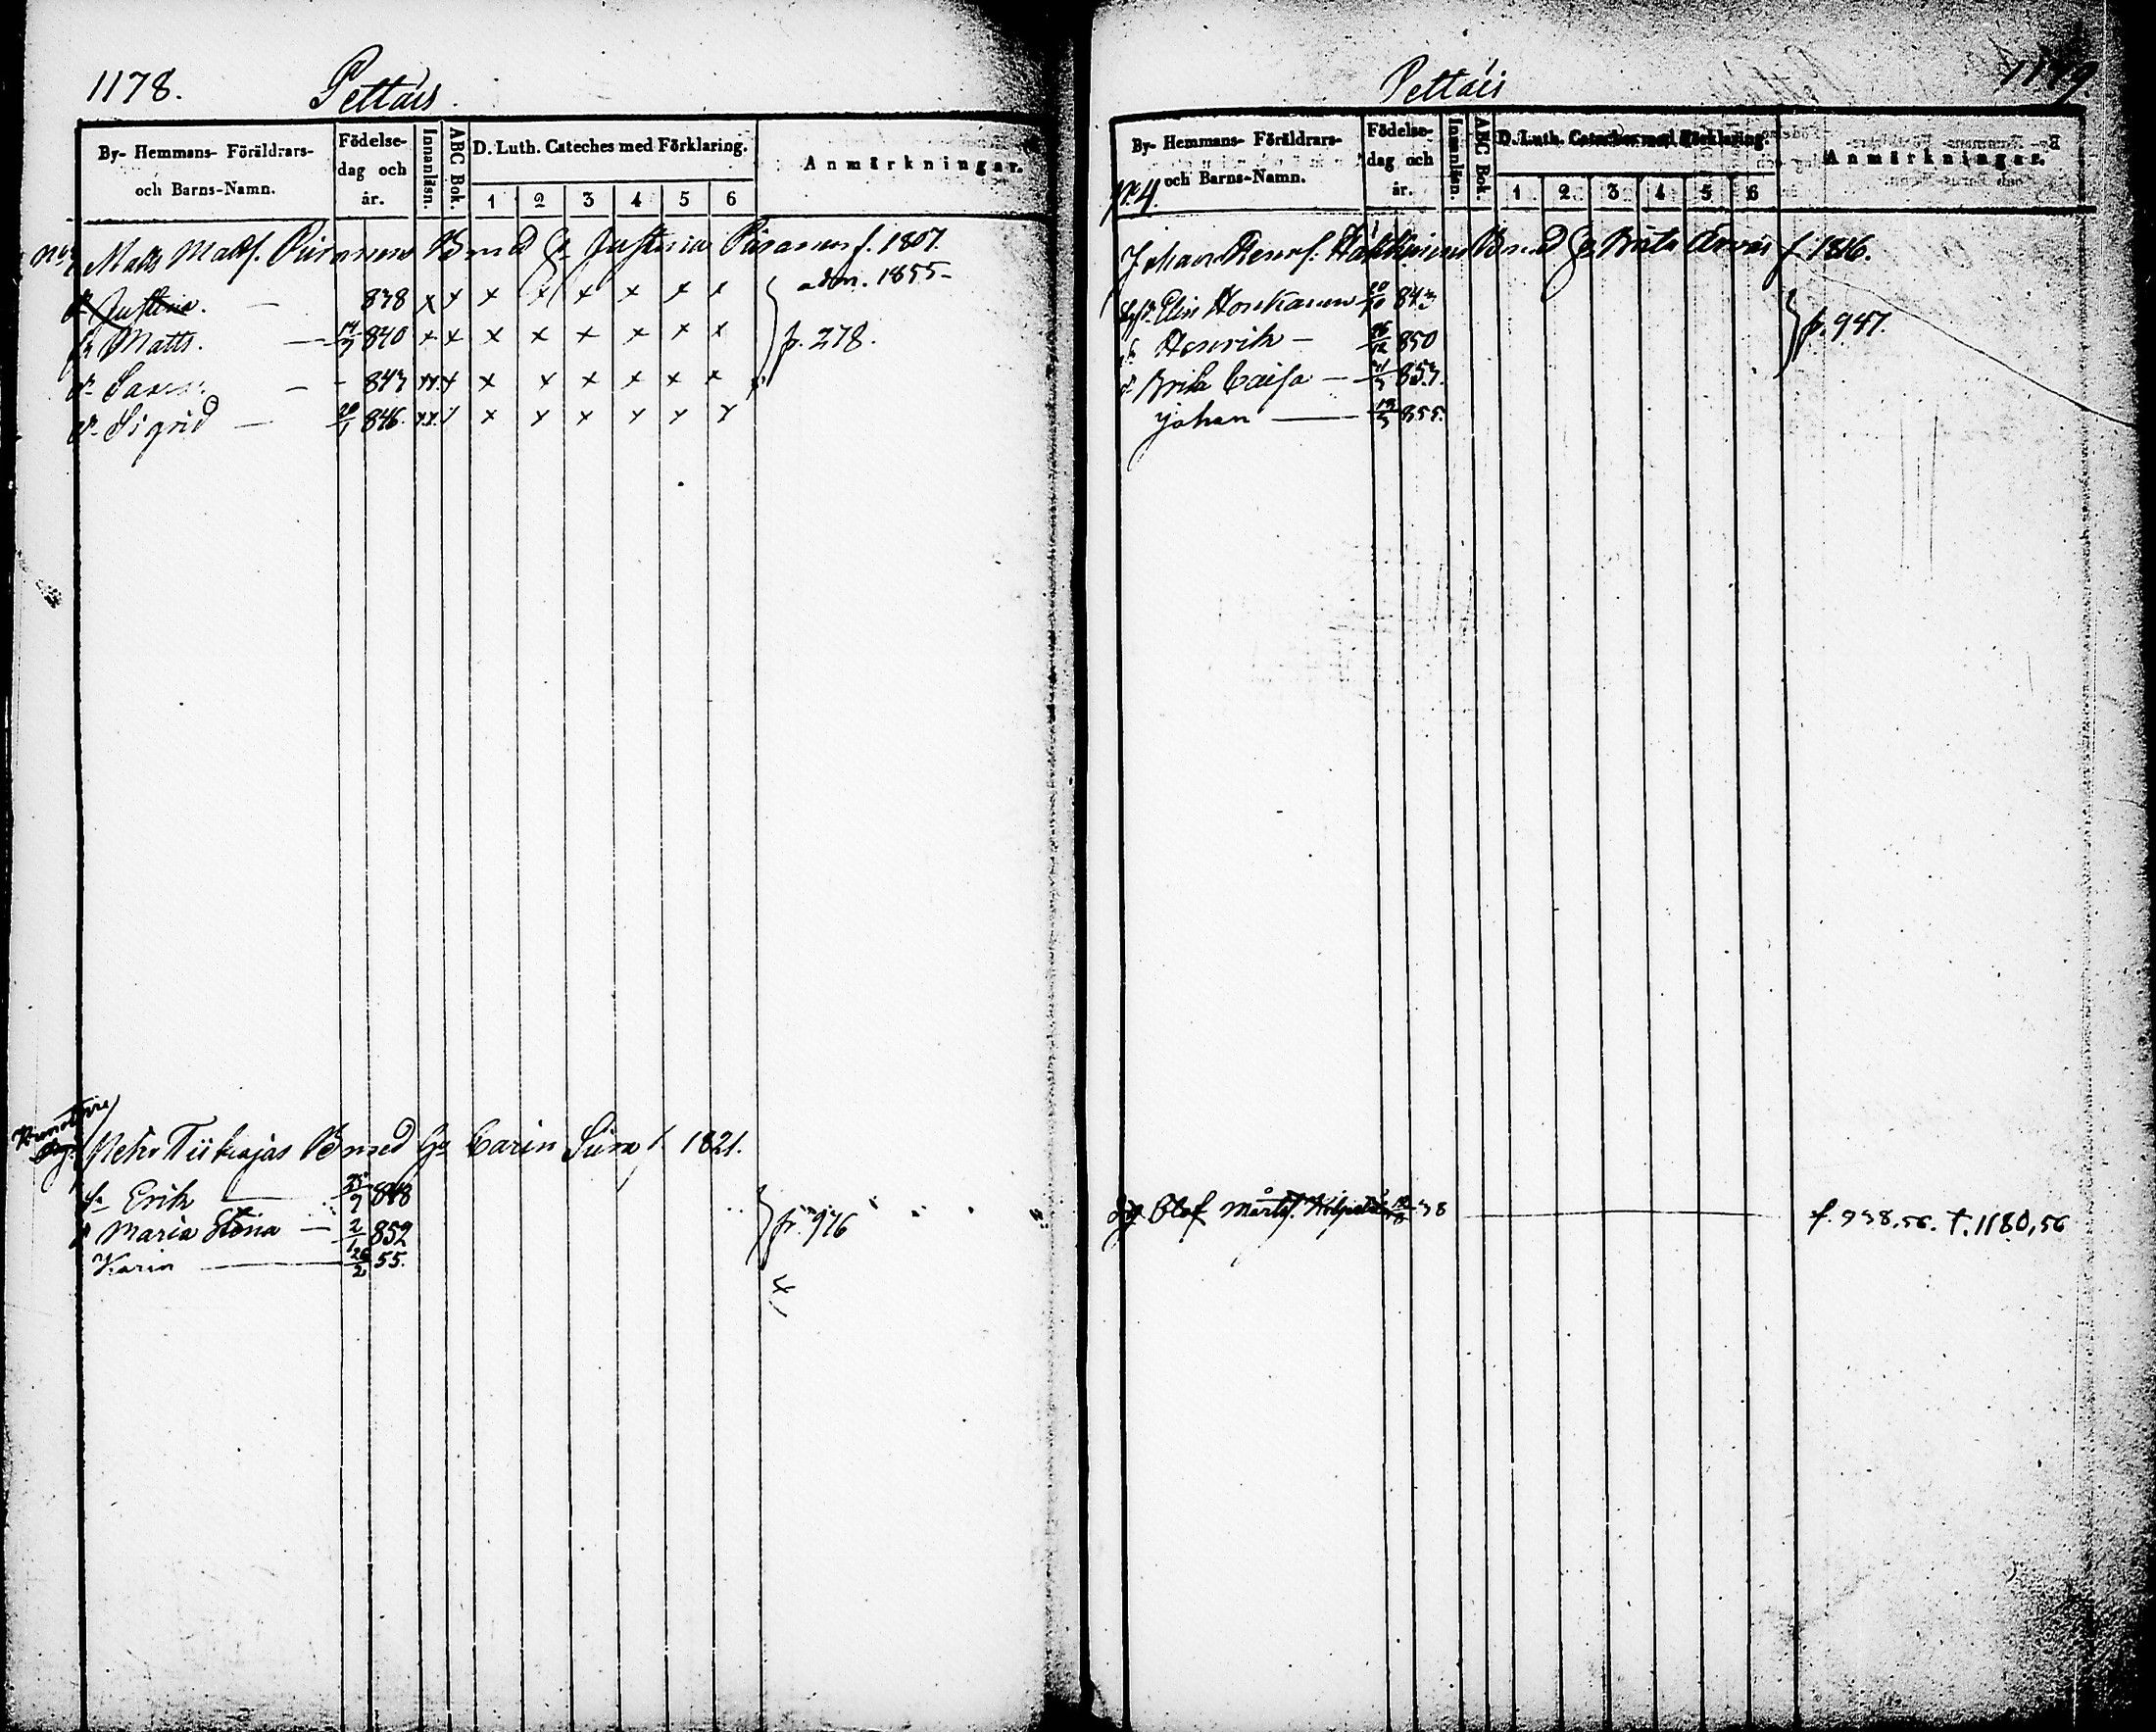 1178.
Pettäis.
By- Hemmans- Föräldrars- och Barns-Namn.
Födelse-dag och år.
Innanläsn.
ABC Bok.
D. Luth. Cateches med Förklaring.
1 2 3 4 5 6
Anmärkningar.
Matts Matts. Piiranen B med H Justina Piiranen f. 1807.
d. Justina. 838 x x x x x x x x adm. 1855
s. Matts. 840 x x x x x x x x p. 278.
d. 843 x x x x x x x x
d. Sigrid 846. x x x x x x x x
Petr Tiikajas B med H Carin Sirn f. 1821.
s. Erik 848
d Maria Stina 2/1 852 p. 976
Karin 26/2 55.
1179
Pettäis
By- Hemmans- Föräldrars- och Barns-Namn.
Födelse-dag och år.
Innanläsn.
ABC Bok.
D. Luth. Cateches med Förklaring.
1 2 3 4 5 6
Anmärkningar.
No. 4.
Johan Henrs. Hakkinen B med H Brita f. 1816.
Elin Honkanen 843
s. Henrik 850 p. 947.
d. Brita Caisa 853.
Johan 855.
Olof Mårts. 38 f. 938,56. T. 1180,56